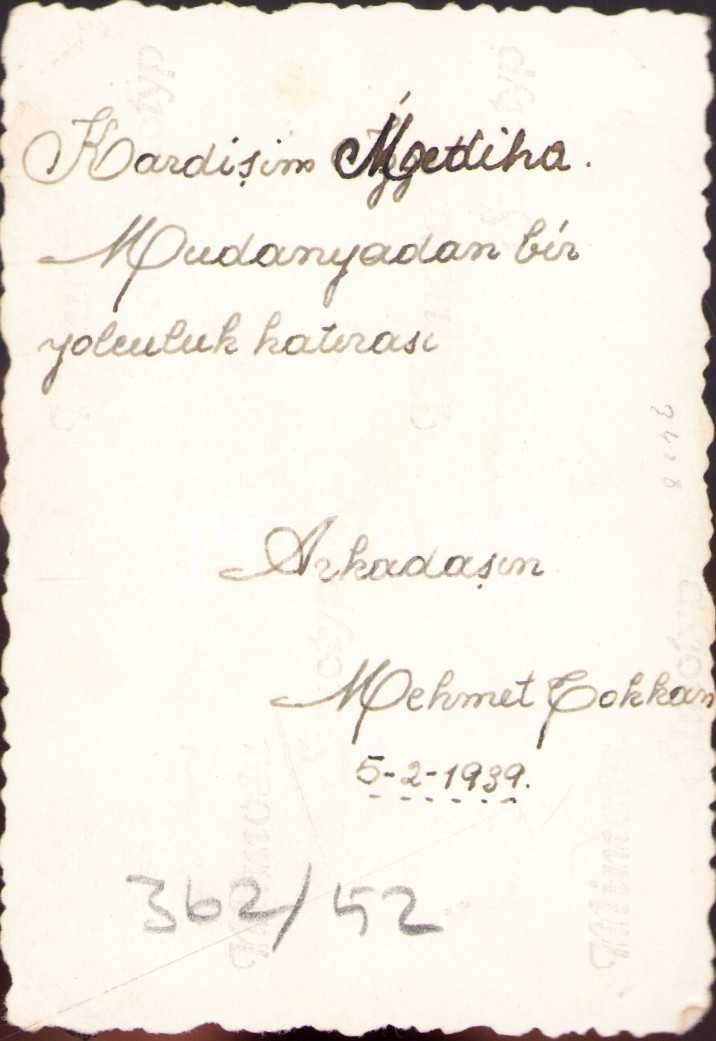 Kardişim
Mudanyadan bir
yolculuk hatırası
Arkadaşın
Mehmet Çokkan
5-2-1939.
362/52